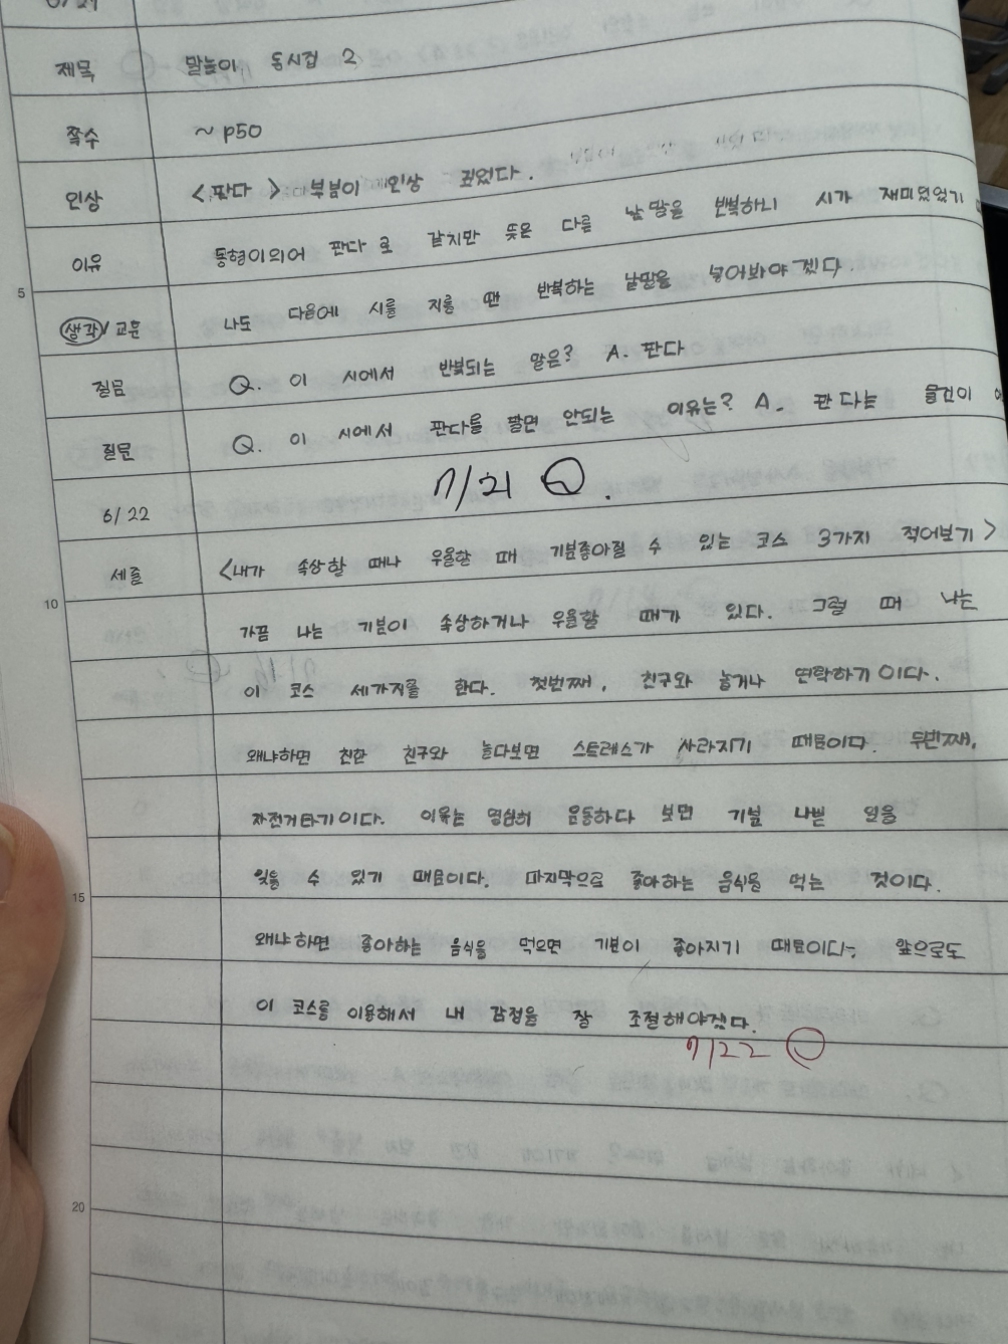 6/21
제목 말놀이 동시집 2
쪽수 ~ p50
인상 <판다> 부분이 인상 깊었다.
이유 동형이의어 판다로 같지만 뜻은 다른 낱말을 반복하니 시가 재미있었기
생각/교훈 나도 다음에 시를 지를 땐 반복하는 낱말을 넣어봐야겠다.
질문 Q. 이 시에서 반복되는 말은? A. 판다
질문 Q. 이 시에서 판다를 팔면 안되는 이유는? A. 판다는 물건이
7/21
6/22
세줄 <내가 속상할 때나 우울할 때 기분좋아질 수 있는 코스 3가지 적어보기>
가끔 나는 기분이 속상하거나 우울할 때가 있다. 그럴 때 나는
이 코스 세가지를 한다. 첫번째, 친구와 놀거나 연락하기이다.
왜냐하면 친한 친구와 놀다보면 스트레스가 사라지기 때문이다. 두번째,
자전거타기이다. 이유는 열심히 운동하다 보면 기분 나쁜 일을
잊을 수 있기 때문이다. 마지막으로 좋아하는 음식을 먹는 것이다.
왜냐하면 좋아하는 음식을 먹으면 기분이 좋아지기 때문이다. 앞으로도
이 코스를 이용해서 내 감정을 잘 조절해야겠다.
7/22
5
10
15
20